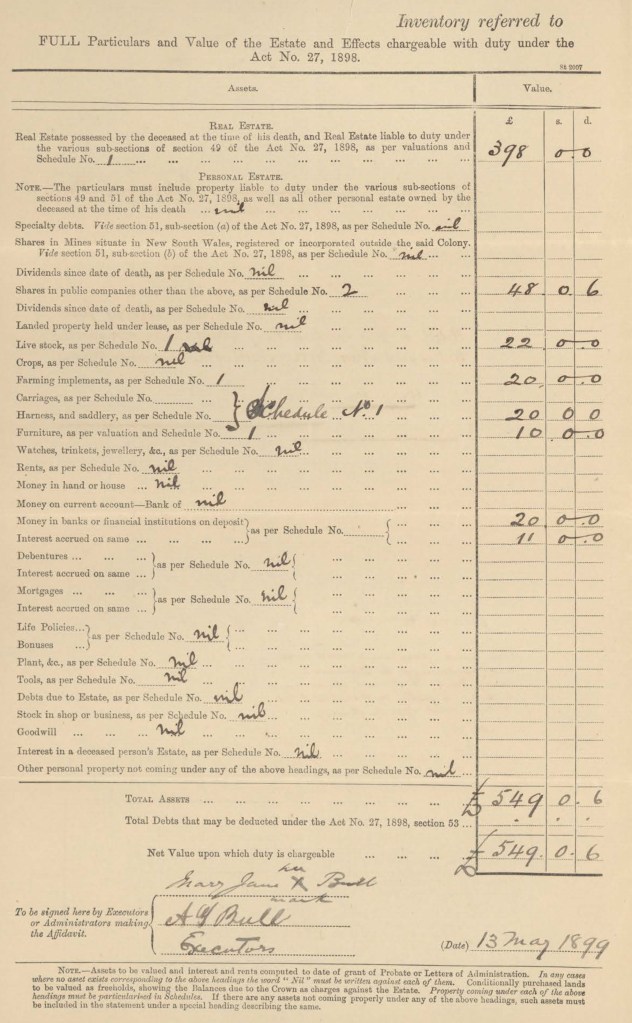 Inventory referred to
FULL Particulars and Value of the Estate and Effects chargeable with duty under the
Act No. 27, 1898.
St 2097
Assets. Value.
£ s. d.
REAL ESTATE.
Real Estate possessed by the deceased at the time of his death, and Real Estate liable to duty under
the various sub-sections of section 49 of the Act No. 27, 1898, as per valuations and
Schedule No. 1 ... ... ... ... ... ... ... ... ... 398 0 . 0
PERSONAL ESTATE.
NOTE.—The particulars must include property liable to duty under the various sub-sections of
sections 49 and 51 of the Act No. 27, 1898, as well as all other personal estate owned by the
deceased at the time of his death ... nil
Specialty debts. Vide section 51, sub-section (a) of the Act No. 27, 1898, as per Schedule No. nil
Shares in Mines situate in New South Wales, registered or incorporated outside the said Colony.
Vide section 51, sub-section (b) of the Act No. 27, 1898, as per Schedule No. nil ... ...
Dividends since date of death, as per Schedule No. nil ... ... ... ... ...
Shares in public companies other than the above, as per Schedule No. 2 ... ... ... 48 . 0 . 6
Dividends since date of death, as per Schedule No. nil ... ... ... ... ...
Landed property held under lease, as per Schedule No. nil ... ... ... ...
Live stock, as per Schedule No. 1 ... ... ... ... ... ... ... 22 . 0 . 0
Crops, as per Schedule No. nil ... ... ... ... ... ... ...
Farming implements, as per Schedule No. 1 ... ... ... ... ... 20 . 0 . 0
Carriages, as per Schedule No.
Harness, and saddlery, as per Schedule No. } Schedule No. 1 ... ... ... 20 0 0
Furniture, as per valuation and Schedule No. 1 ... ... ... ... ... 10 . 0 . 0
Watches, trinkets, jewellery, &c., as per Schedule No. nil ... ... ... ...
Rents, as per Schedule No. nil ... ... ... ... ... ... ...
Money in hand or house ... nil ... ... ... ... ... ... ...
Money on current account—Bank of nil
Money in banks or financial institutions on deposit } as per Schedule No. { ... ... ... 20 . 0 . 0
Interest accrued on same ... ... ... ... ... ... ... 11 0 . 0
Debentures ... ... ... } as per Schedule No. nil { ... ... ... ...
Interest accrued on same ... ... ... ... ...
Mortgages ... ... ... } as per Schedule No. nil { ... ... ... ...
Interest accrued on same ... ... ... ... ...
Life Policies... } as per Schedule No. nil { ... ... ... ... ...
Bonuses ... ... ... ... ... ...
Plant, &c., as per Schedule No. nil ... ... ... ... ... ... ...
Tools, as per Schedule No. nil ... ... ... ... ... ...
Debts due to Estate, as per Schedule No. nil ... ... ... ... ...
Stock in shop or business, as per Schedule No. nil ... ... ... ... ...
Goodwill ... nil ... ... ... ... ... ... ...
Interest in a deceased person's Estate, as per Schedule No. nil ... ... ... ...
Other personal property not coming under any of the above headings, as per Schedule No. nil ...
TOTAL ASSETS ... ... ... ... ... ... ... £ 549 0 . 6
Total Debts that may be deducted under the Act No. 27, 1898, section 53 ...
Net Value upon which duty is chargeable ... ... ... £ 549 . 0 . 6
her
Mary Jane X Bull
mark
To be signed here by Executors
or Administrators making
the Affidavit.
A G Bull
Executors
(Date) 13 May 1899
NOTE.—Assets to be valued and interest and rents computed to date of grant of Probate or Letters of Administration. In any cases
where no asset exists corresponding to the above headings the word "Nil" must be written against each of them. Conditionally purchased lands
to be valued as freeholds, showing the Balances due to the Crown as charges against the Estate. Property coming under each of the above
headings must be particularised in Schedules. If there are any assets not coming properly under any of the above headings, such assets must
be included in the statement under a special heading describing the same.